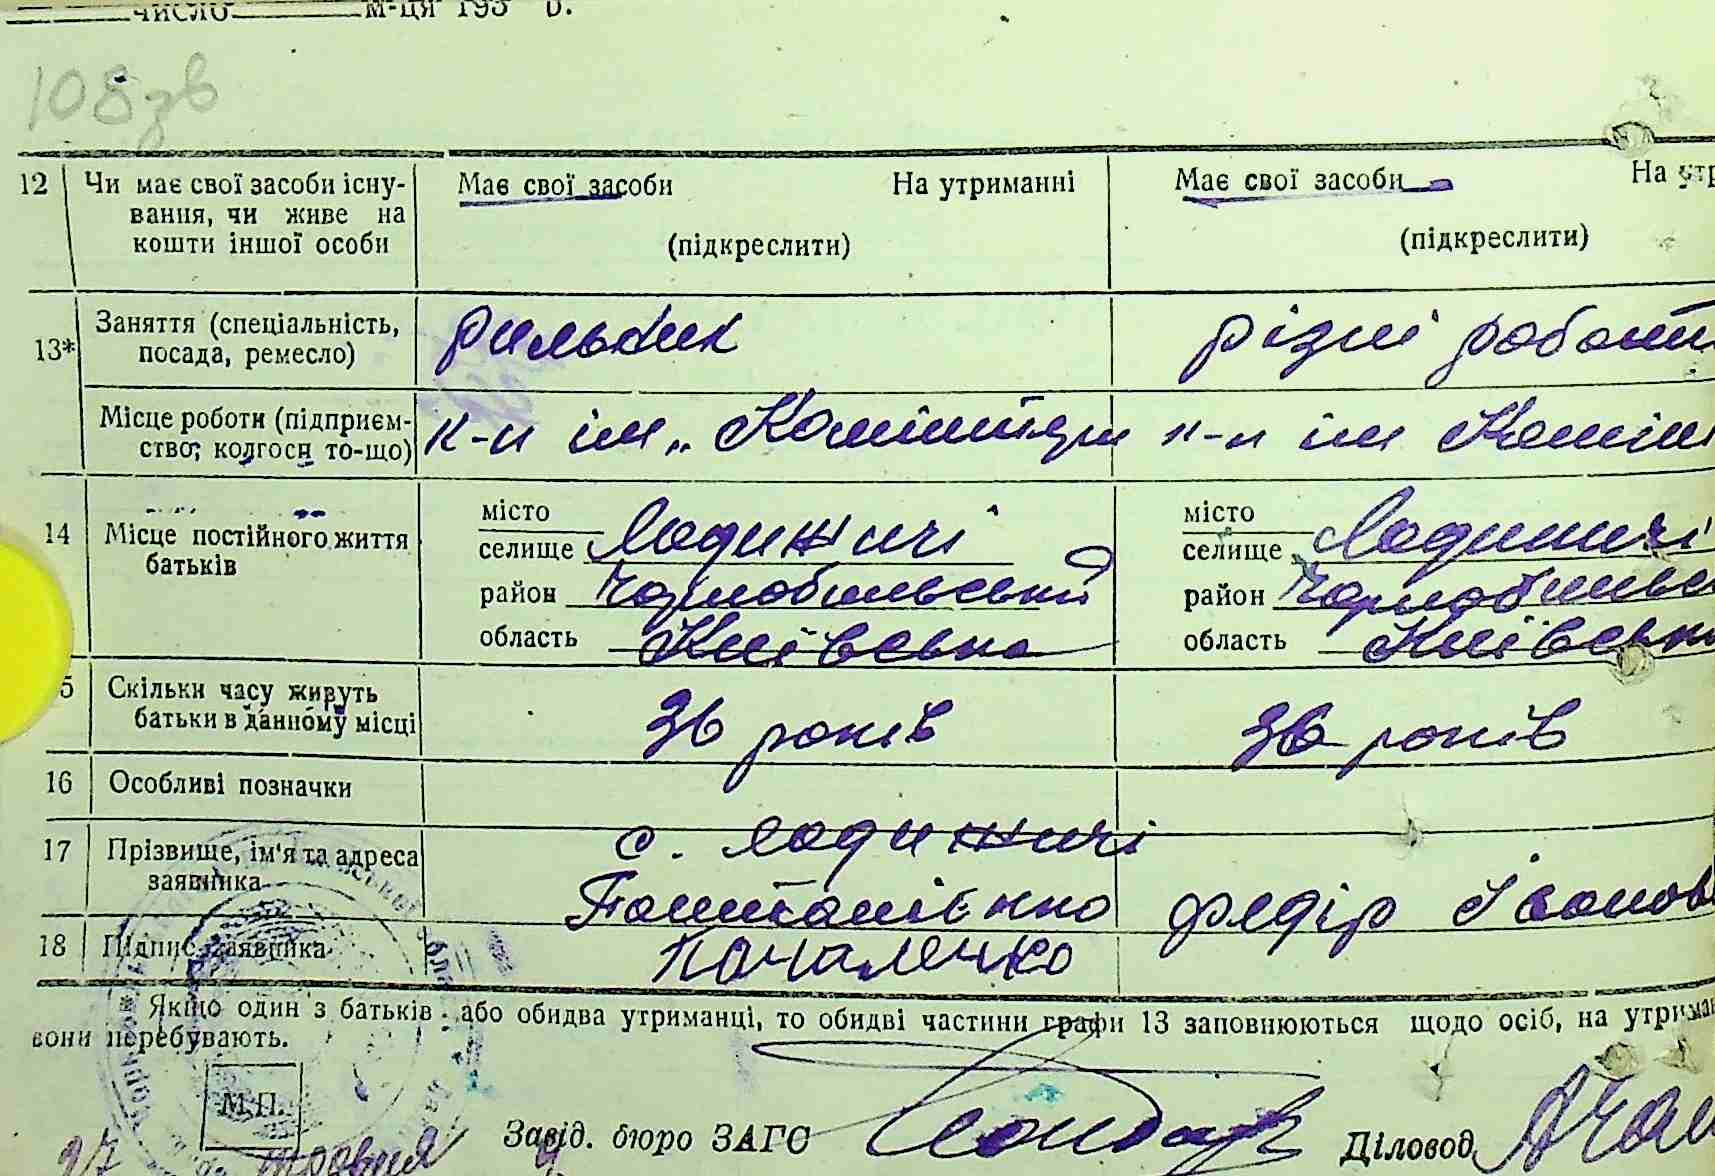 число м-ця 193 р.
108 зв
12 Чи має свої засоби існу- Має свої засоби На утриманні Має свої засоби На утр
вання, чи живе на
кошти іншої особи (підкреслити) (підкреслити)
13* Заняття (спеціальність, рильник різні робот
посада, ремесло)
Місце роботи (підприєм- к-п ім. „Комінтерн к-п ім Комін
ство, колгосп то-що)
14 Місце постійного життя місто Ладижичі місто Ладижичі
батьків селище селище
район Чорнобильський район Чорнобильсь
область Київська область Київськ
5 Скільки часу живуть 36 років 36 років
батьки в данному місці
16 Особливі позначки
17 Прізвище, ім'я та адреса с. Ладижичі
заявника Федір Іванов
18 Підпис заявника
Якщо один з батьків або обидва утриманці, то обидві частини графи 13 заповнюються щодо осіб, на утриман
вони перебувають.
М.П.
27 травня Завід. бюро ЗАГС Діловод